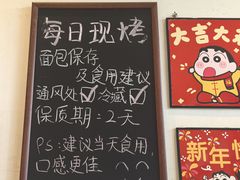 每日现烤
面包保存
及食用建议
通风处✓冷藏✓
保质期：2天
PS：建议当天食用
口感更佳
大吉大
新年快